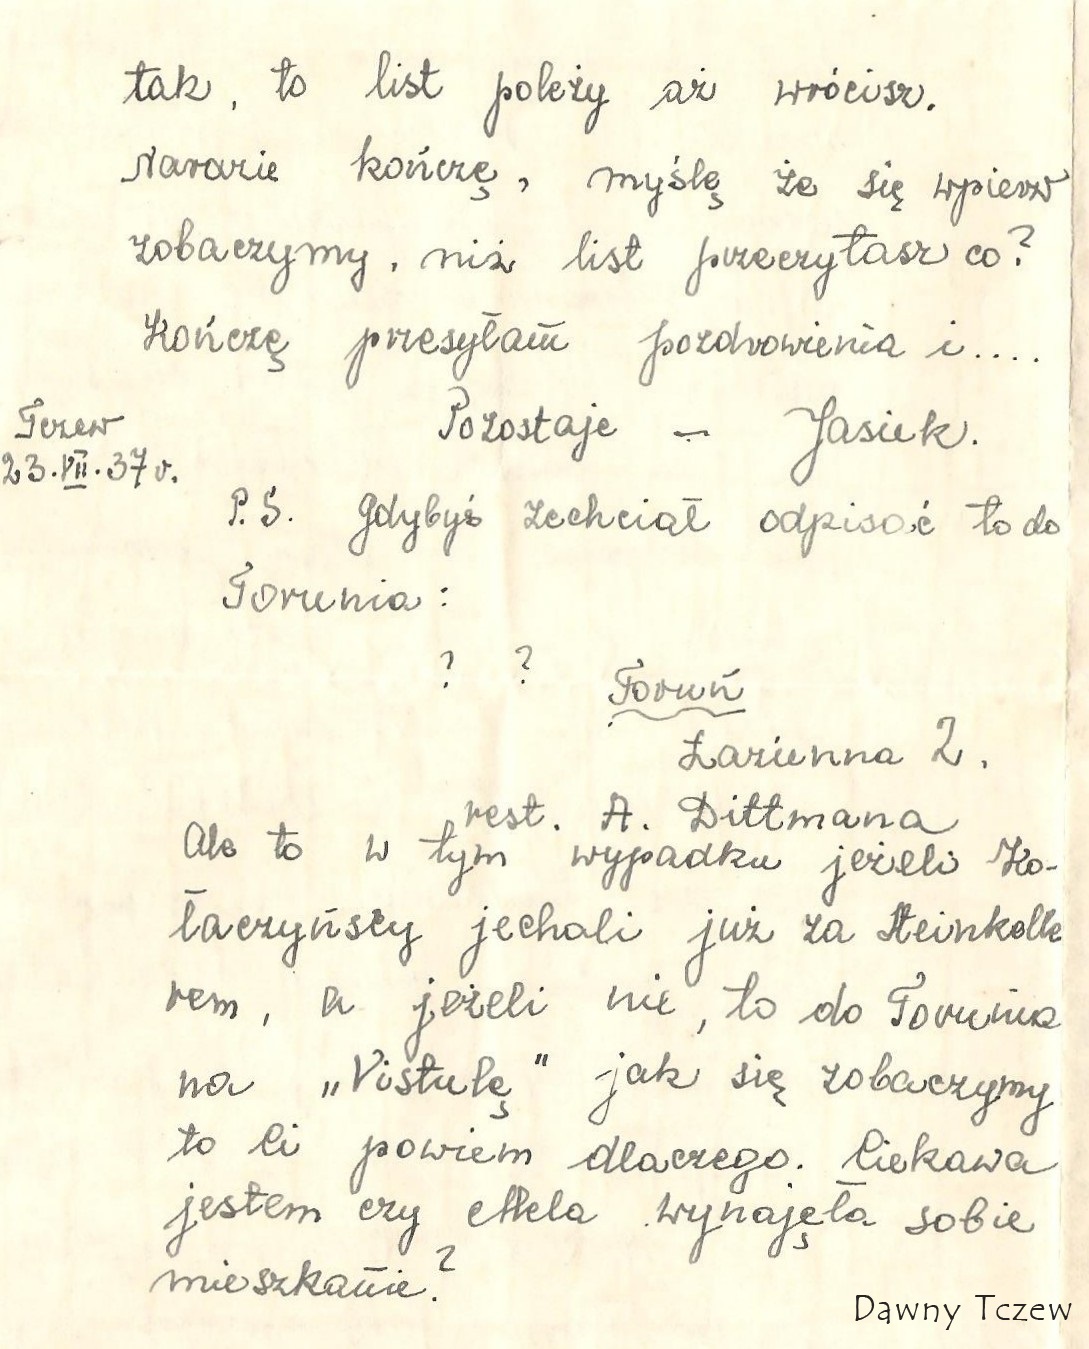 tak, to list poleży aż wrócisz.
Narazie kończę, myślę że się wpierw
zobaczymy, niż list przeczytasz co?
Kończę przesyłam pozdrowienia i....
Pozostaje — Jasiek.
Tczew
23.VII.37 r.
P.S. Gdybyś zechciał odpisać to do
Torunia:
? ? Toruń
Łazienna 2.
rest. A. Dittmana
Ale to w tym wypadku jeżeli Ko-
łaczyńscy jechali już za Steinkelle
rem, a jeżeli nie, to do Torunia
na „Vistulę" jak się zobaczymy
to Ci powiem dlaczego. Ciekawa
jestem czy wynajęła sobie
mieszkanie?
Dawny Tczew